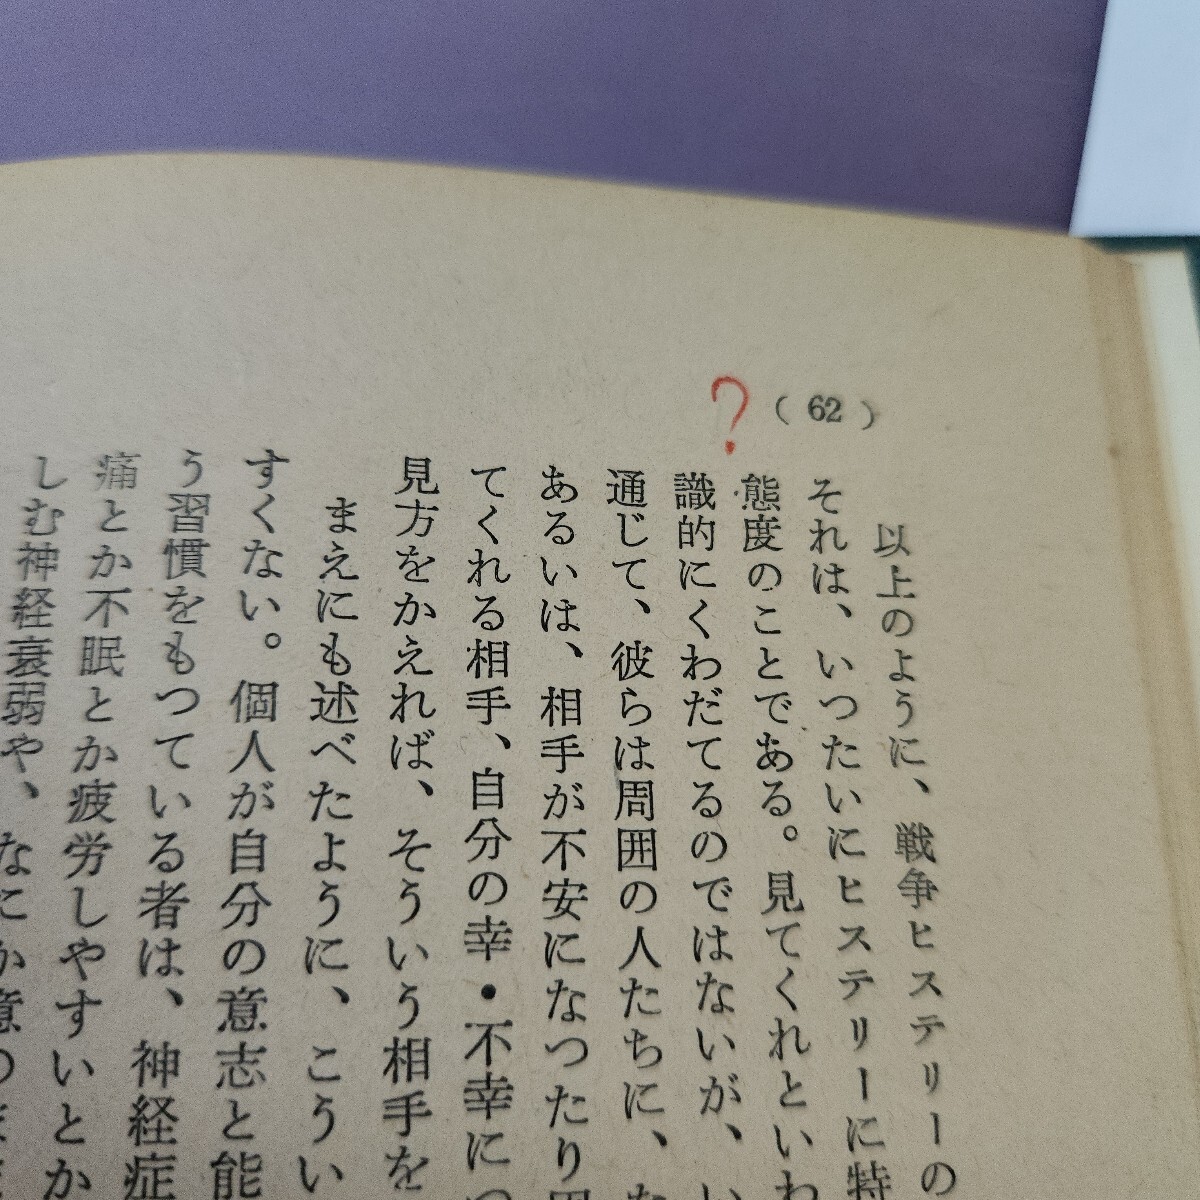 (62)
?
以上のように、戦争ヒステリーの
それは、いつたいにヒステリーに特
態度のことである。見てくれといわ
識的にくわだてるのではないが、い
通じて、彼らは周囲の人たちに、な
あるいは、相手が不安になつたり
てくれる相手、自分の幸・不幸に
見方をかえれば、そういう相手を
まえにも述べたように、こうい
すくない。個人が自分の意志と能
う習慣をもつている者は、神経症
痛とか不眠とか疲労しやすいとか
しむ神経衰弱や、なにか意の